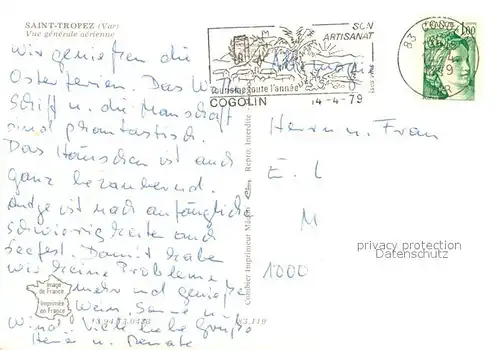 SAINT-TROPEZ (Var)
Vue générale aérienne
Wir genießen die
Osterferien. Das W
Schiff u. die Manschaft
sind phantastisch.
Das Häuschen ist auch
ganz bezaubernd.
ist nach anfänglichen
Schwierigkeiten auch
seefest. Damit habe
wir keine Probleme
mehr und genießen
Wein, Sonne u.
Wind! Viele liebe Grüße
u. Renate
Image
de France
Imprimée
en France
83.119
Combier Imprimeur Mâcon
Repro. Interdite
SON
ARTISANAT
Tourisme toute l'année
COGOLIN 14-4-79
83
1,00
Herrn u. Frau
E. L
M
1000
privacy protection
Datenschutz